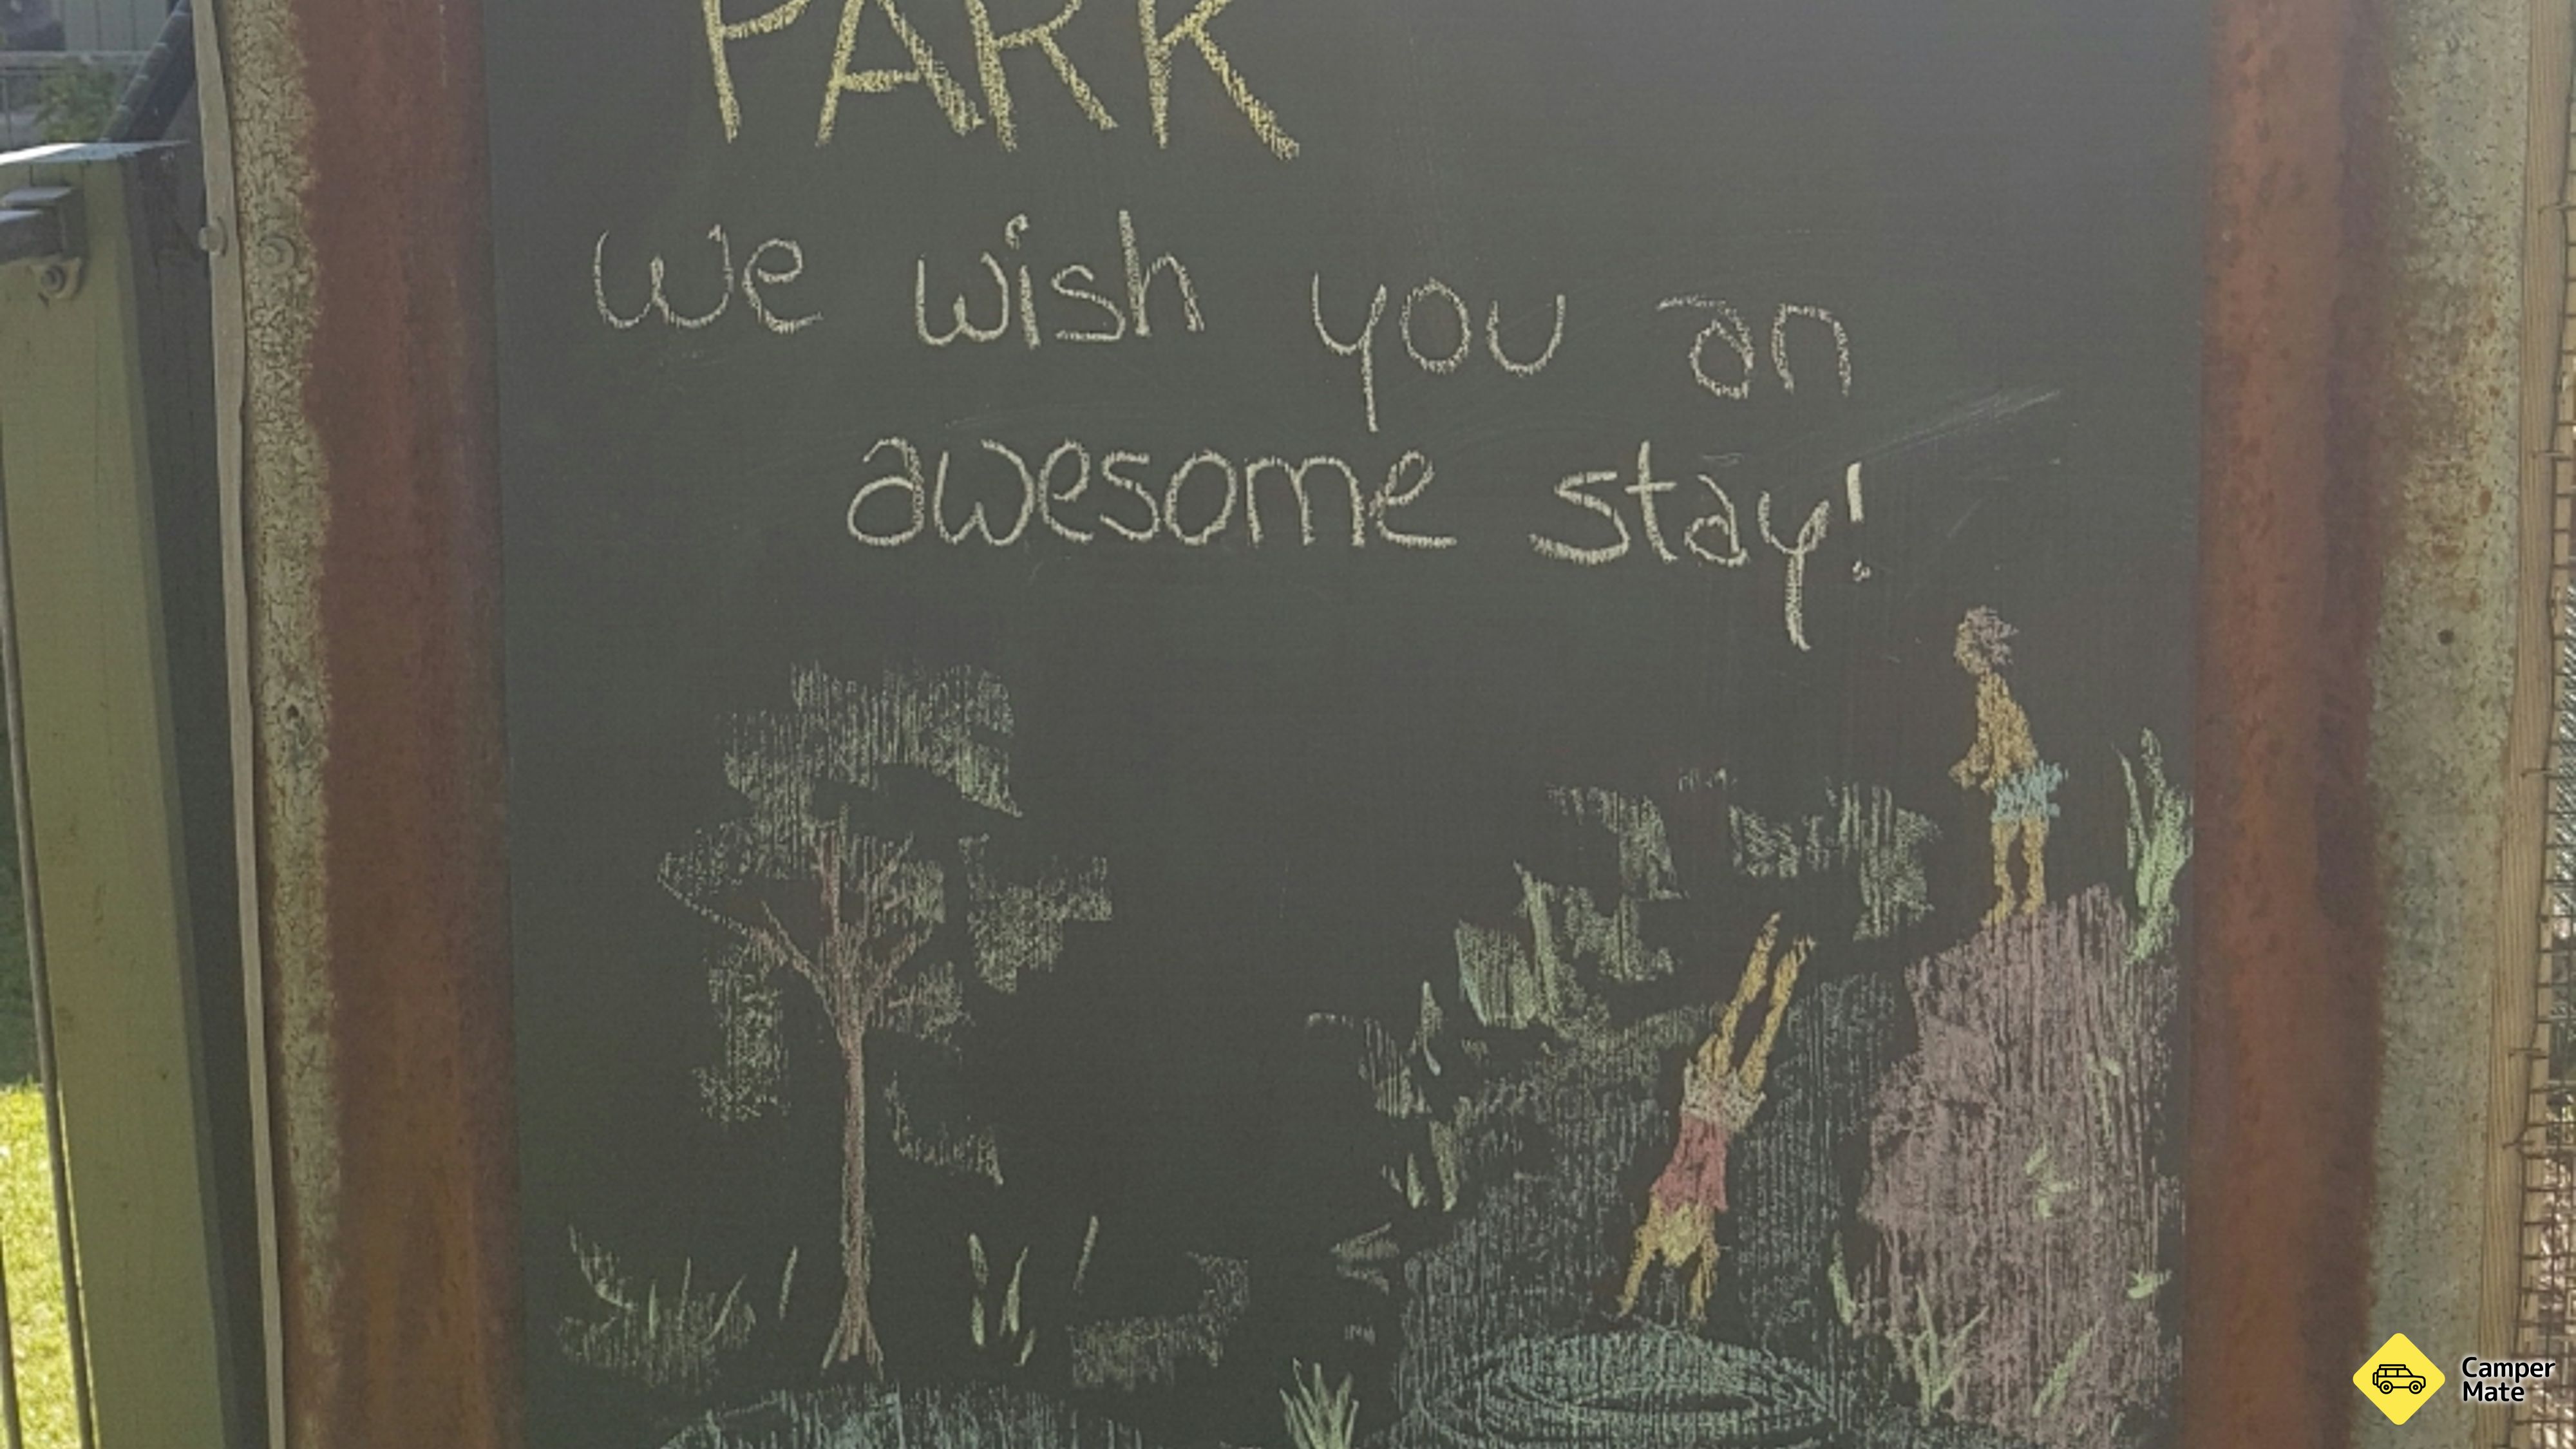 PARK
we wish you an
awesome stay!
Camper
Mate